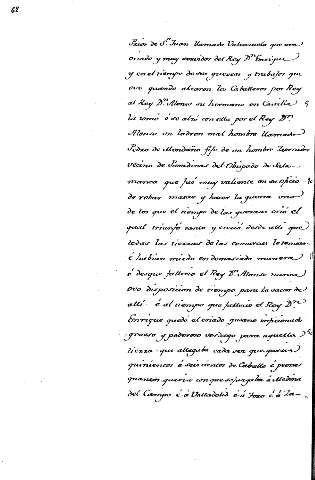 68
Prior de Sn. Juan llamado Valenzuela que era
criado y muy servidor del Rey Dn. Enrique
y en el tiempo de sus guerras y trabajos que
fue quando alzaron los Caballeros por Rey
al Rey Dn. Alonso su hermano en Castilla
la tomó ó se alzó con ella por el Rey Dn.
Alonso un ladron mal hombre llamado
Pedro de Mendaño fijo de un hombre
vecino de Paradinas del Obispado de Sala-
manca que fué muy valiente en su oficio
de robar matar y hacer la guerra
de los que el tiempo de las guerras crió el
qual triunfó tanto y creció desde allí que
todas las tierras de las comarcas le temian
é habian miedo en demasiada manera
é desque fallecio el Rey Dn. Alonso nunca
ovo disposicion de tiempo para la sacar de
allí é al tiempo que fallecio el Rey Dn.
Enrique quedó el criado gusano
grueso y poderoso verdugo para aquella
tierra que allegaba cada vez que queria
quinientos é seiscientos de Caballo é peones
quantos queria con que sojuzgaba á Medina
del Campo é á Valladolid é á Toro é á Za-